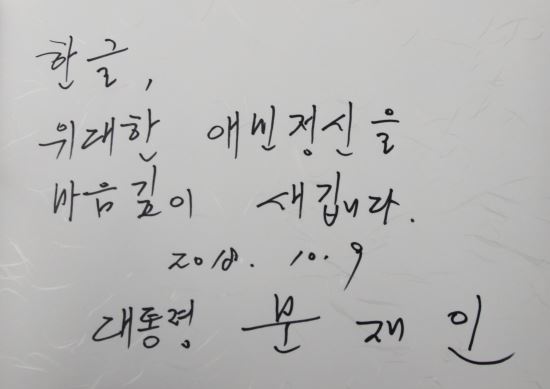 한글,
위대한 애민정신을
마음깊이 새깁니다.
2018. 10. 9
대통령 문재인